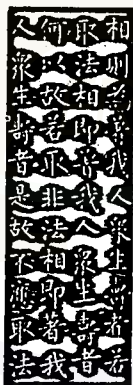 相則為著我人眾生壽者若
取法相即著我人眾生壽者
何以故若取非法相即著我
人眾生壽者是故不應取法